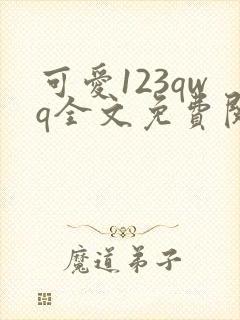 可愛123qw
q全文免費
魔道弟子